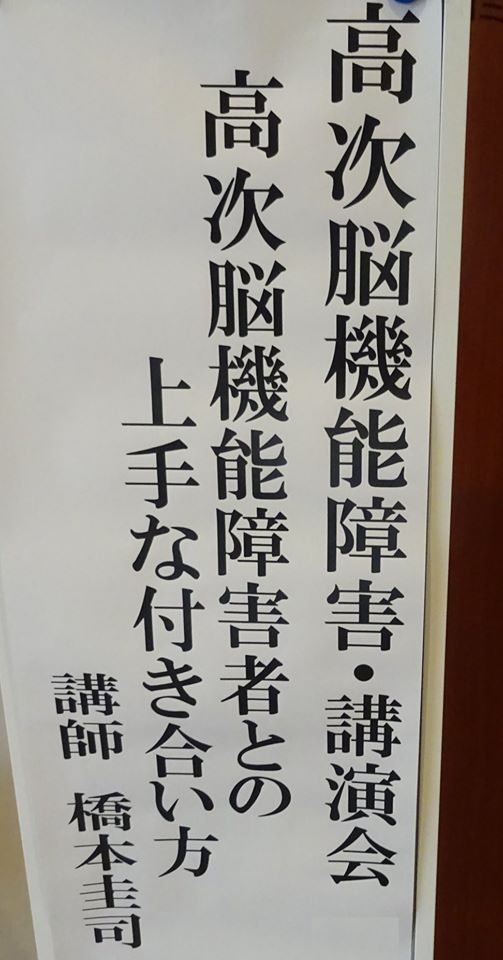 高次脳機能障害・講演会
高次脳機能障害者との
上手な付き合い方
講師 橋本圭司